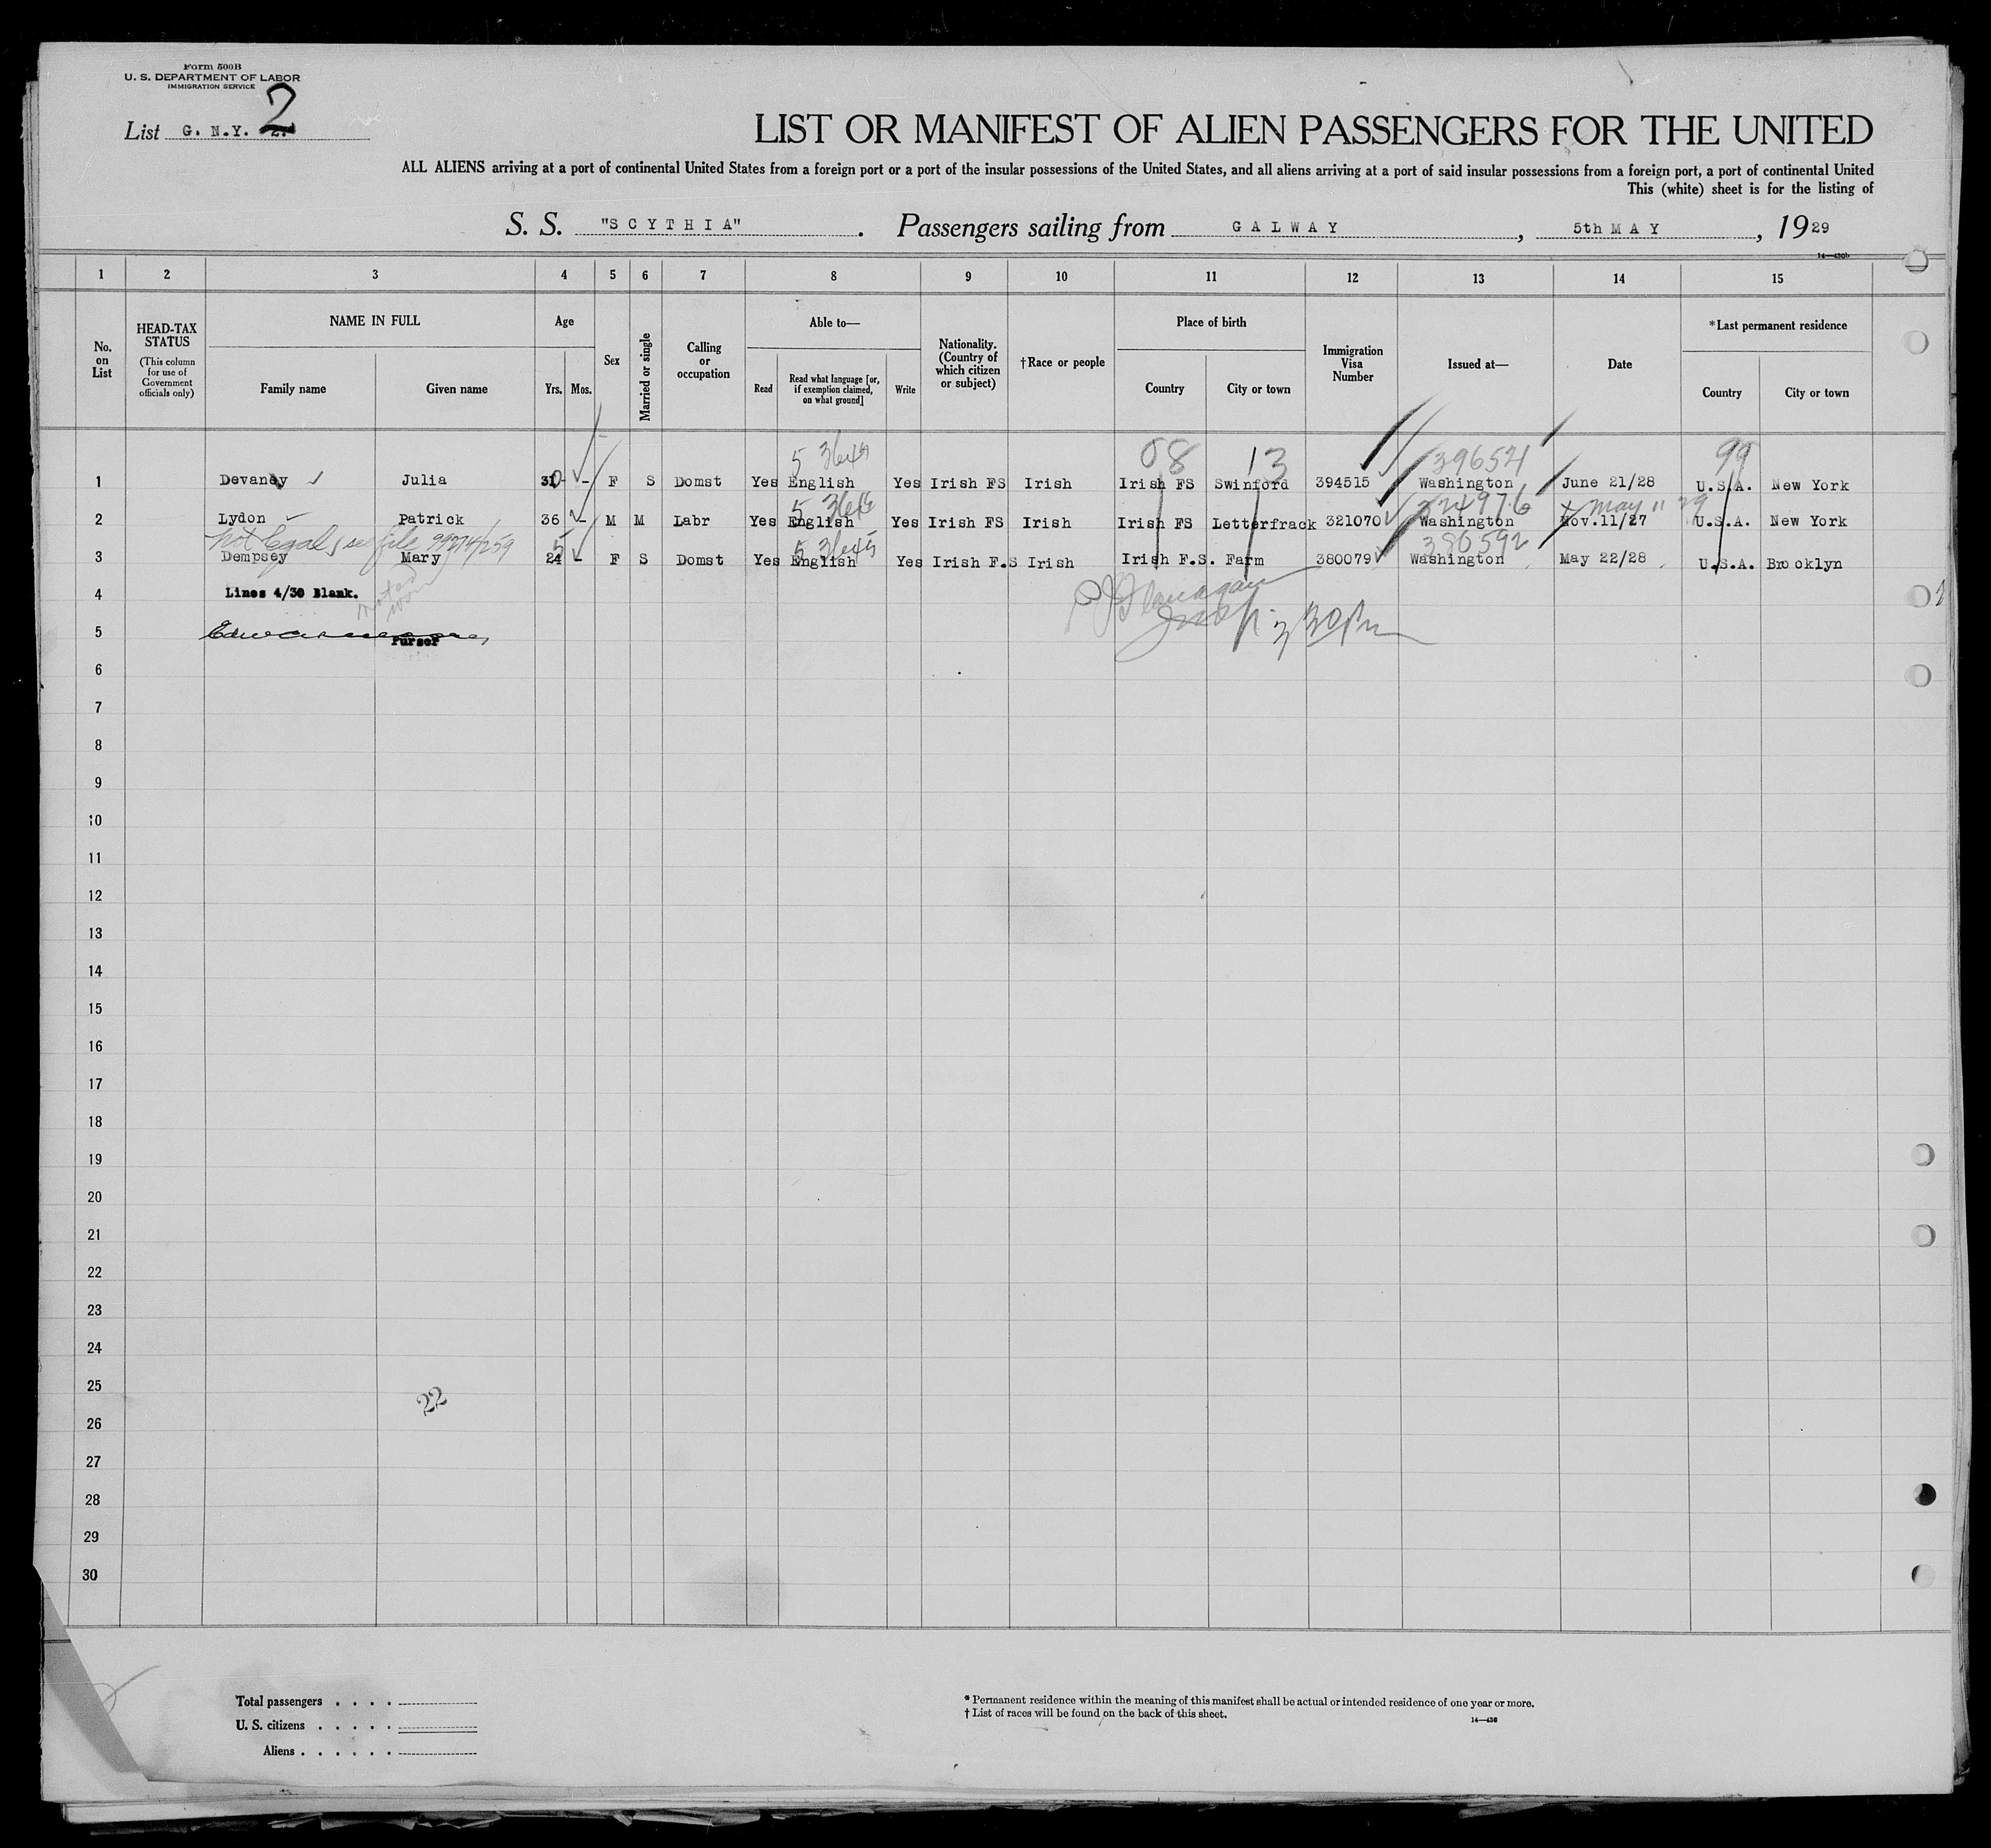 Form 500B
U. S. DEPARTMENT OF LABOR
IMMIGRATION SERVICE
2
List G. N.Y. 2.
LIST OR MANIFEST OF ALIEN PASSENGERS FOR THE UNITED
ALL ALIENS arriving at a port of continental United States from a foreign port or a port of the insular possessions of the United States, and all aliens arriving at a port of said insular possessions from a foreign port, a port of continental United
This (white) sheet is for the listing of
S. S. "SCYTHIA". Passengers sailing from GALWAY, 5th MAY, 1929
14—430b
1 2 3 4 5 6 7 8 9 10 11 12 13 14 15
No. on List
HEAD-TAX STATUS
(This column for use of Government officials only)
NAME IN FULL
Family name
Given name
Age
Yrs. Mos.
Sex
Married or single
Calling or occupation
Able to—
Read
Read what language [or, if exemption claimed, on what ground]
Write
Nationality. (Country of which citizen or subject)
†Race or people
Place of birth
Country
City or town
Immigration Visa Number
Issued at—
Date
*Last permanent residence
Country
City or town
08 13 396521 99
1 Devaney Julia 30 - F S Domst Yes English Yes Irish FS Irish Irish FS Swinford 394515 Washington June 21/28 U.S.A. New York
324976 May 11 29
2 Lydon Patrick 36 - M M Labr Yes English Yes Irish FS Irish Irish FS Letterfrack 321070 Washington Nov.11/27 U.S.A. New York
not legal, see file 99274/259 5 386592
3 Dempsey Mary 24 - F S Domst Yes English Yes Irish F.S Irish Irish F.S. Farm 380079 Washington May 22/28 U.S.A. Brooklyn
4 Lines 4/30 Blank.
5 Purser
6
7
8
9
10
11
12
13
14
15
16
17
18
19
20
21
22
23
24
25
22
26
27
28
29
30
Total passengers . . . .
U. S. citizens . . . . .
Aliens . . . . . .
* Permanent residence within the meaning of this manifest shall be actual or intended residence of one year or more.
† List of races will be found on the back of this sheet.
14—430